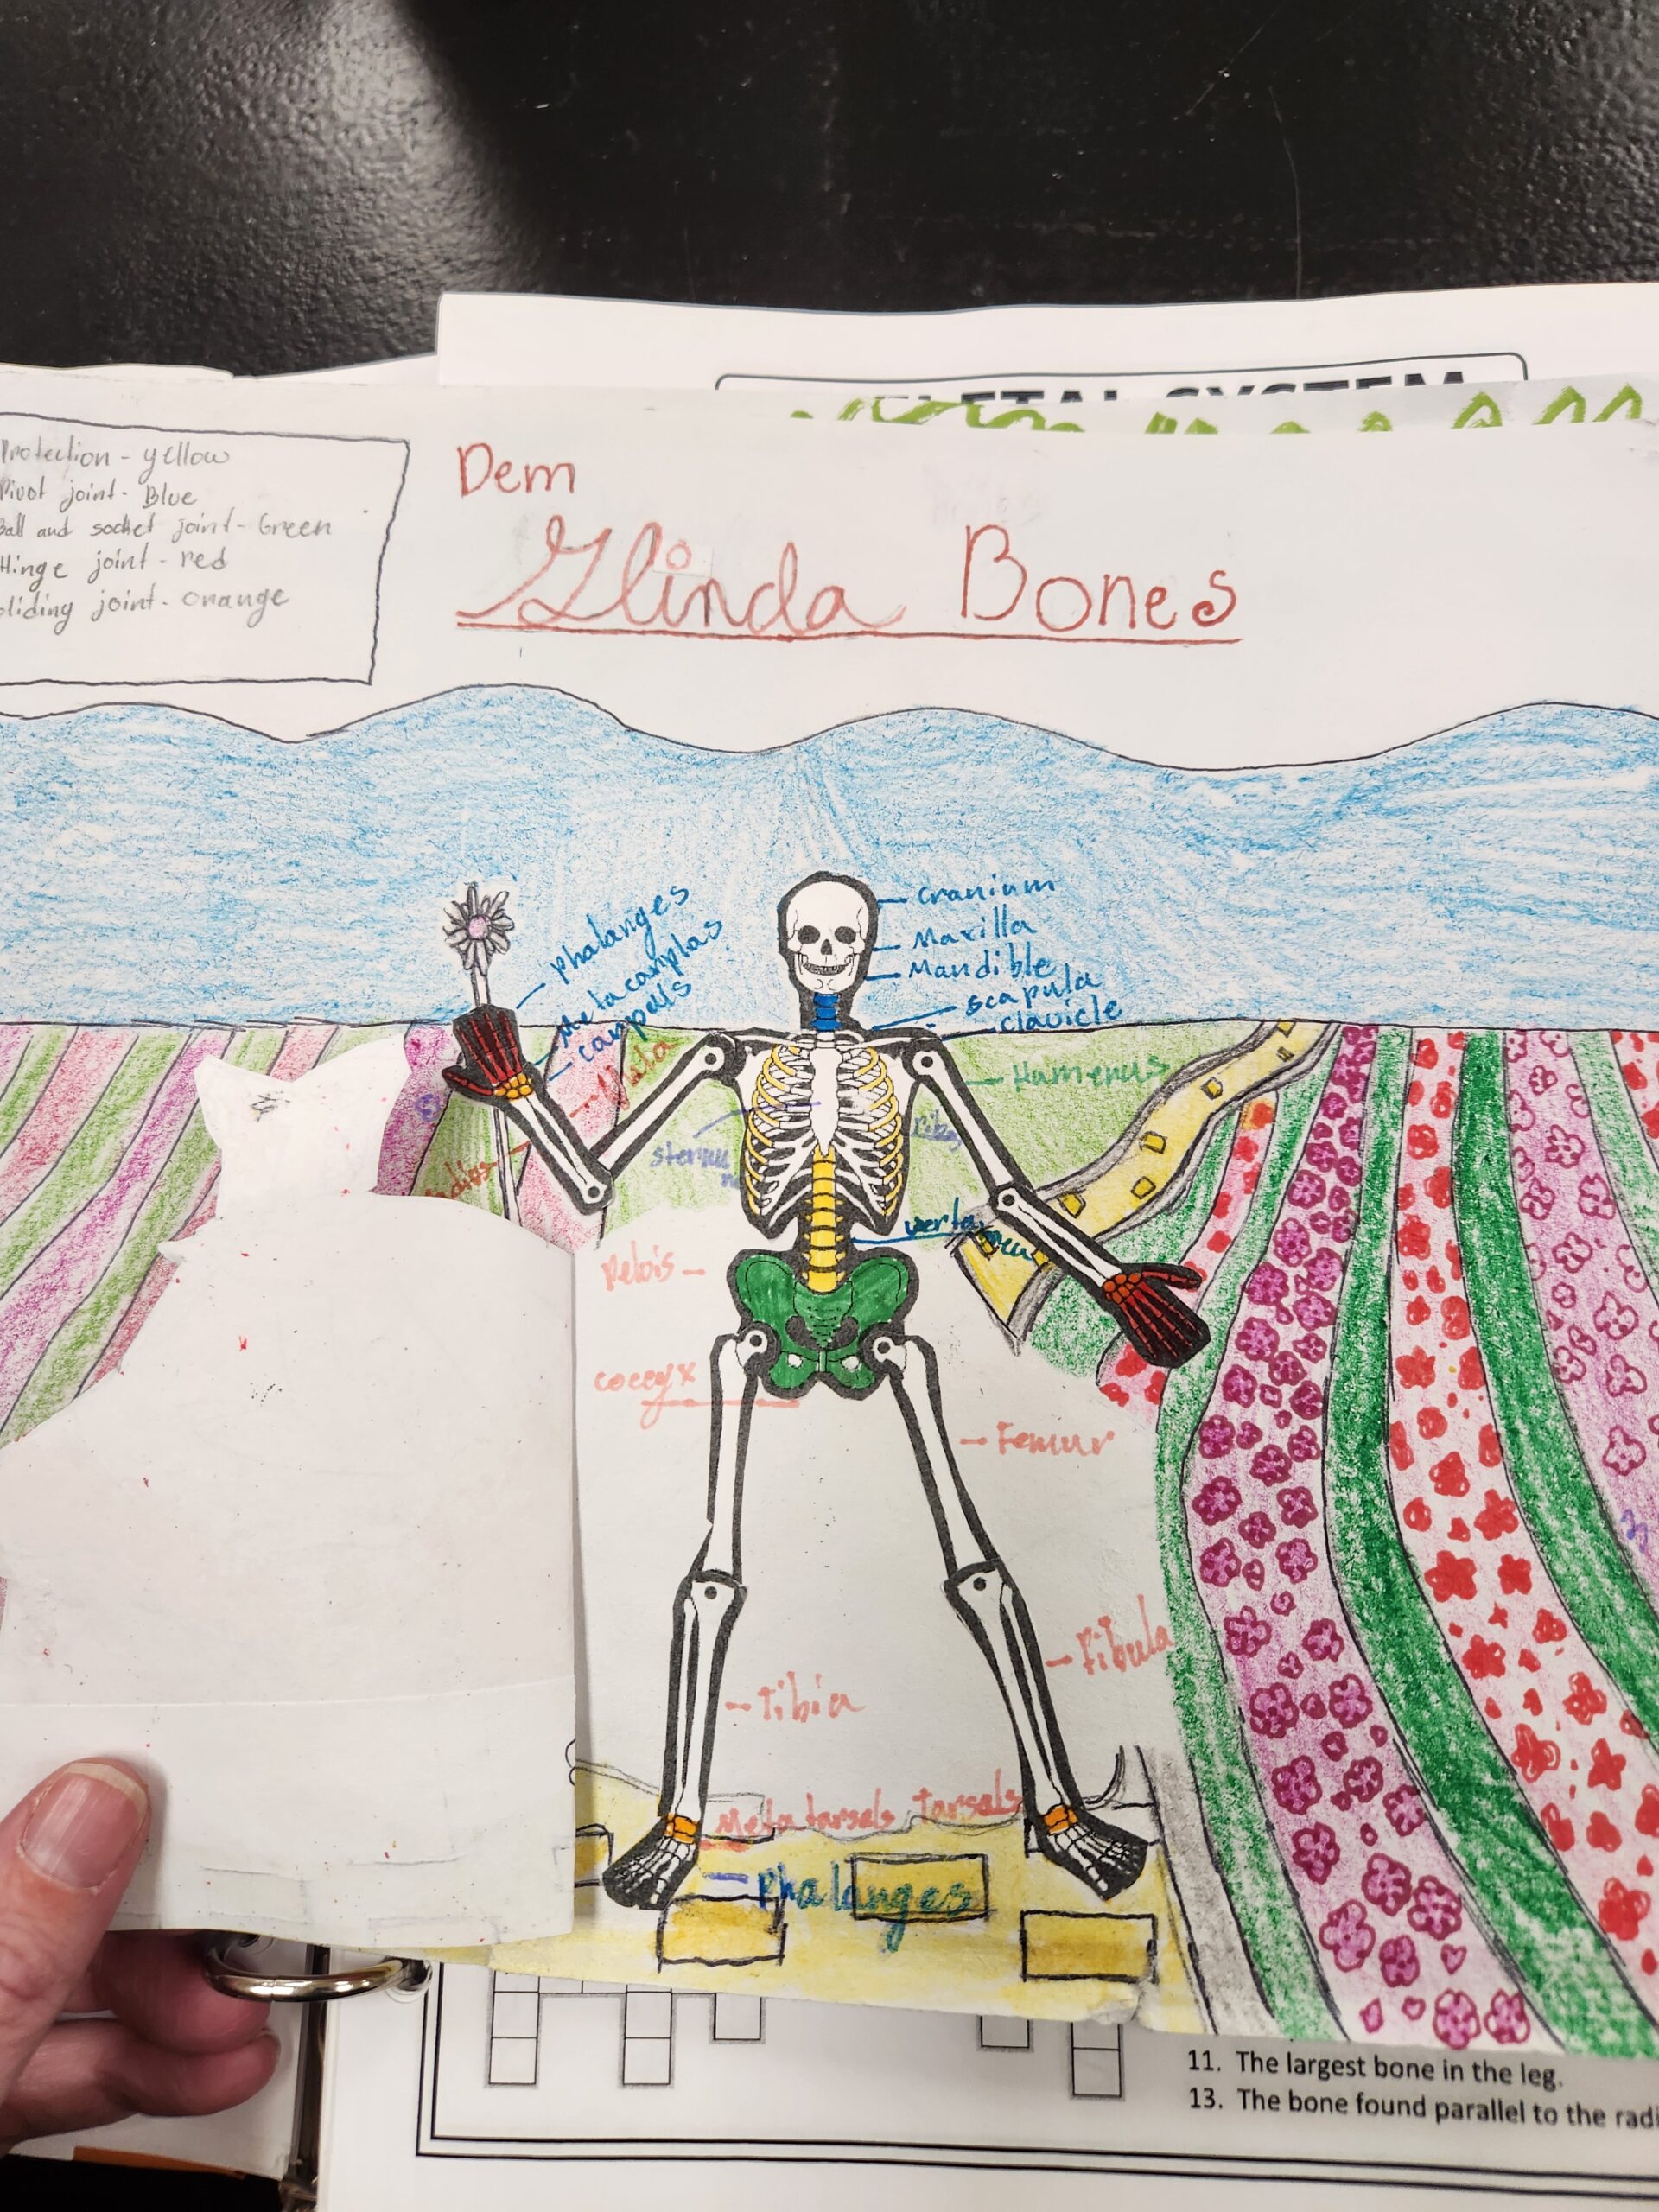 SKELETAL SYSTEM
Protection - yellow
Pivot joint - Blue
Ball and socket joint - Green
Hinge joint - red
Gliding joint - orange
Dem
Glinda Bones
Cranium
Maxilla
Mandible
scapula
clavicle
phalanges
Metacarplas
carpals
ulna
Humerus
sternu
ribs
pelvis
coccyx
Femur
Fibula
Tibia
Metatarsals Tarsals
Phalanges
11. The largest bone in the leg.
13. The bone found parallel to the radi